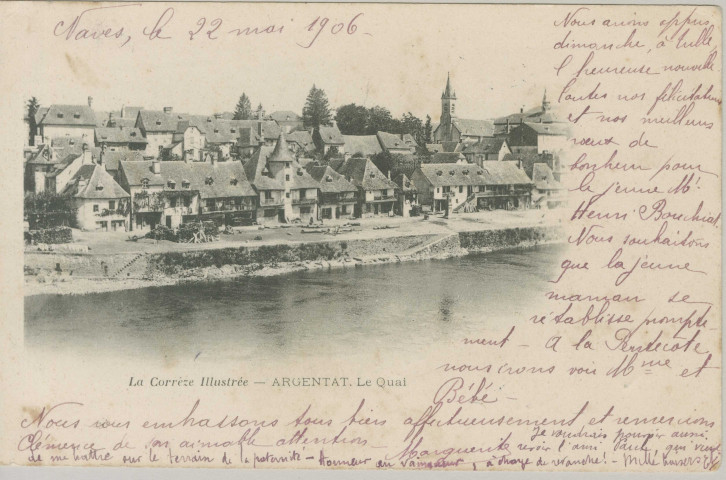 Naves, le 22 mai 1906-
Nous avons appris
dimanche, à Tulle,
l'heureuse nouvelle
toutes nos félicitations
et nos meilleurs
vœux de
bonheur pour
le jeune Mr
Henri Bouchiat.
Nous souhaitons
que la jeune
maman se
rétablisse prompte
ment - à la Pentecôte
nous irons voir Mme et
Bébé -
La Corrèze Illustrée — ARGENTAT. Le Quai
Nous vous embrassons tous bien affectueusement et remercions
Clémence de son aimable attention - Marguerite
Je voudrais pouvoir aussi
revoir l'ami Paul, qui vient
de me battre sur le terrain de la paternité - Honneur au vainqueur, à charge de revanche! - Mille baisers